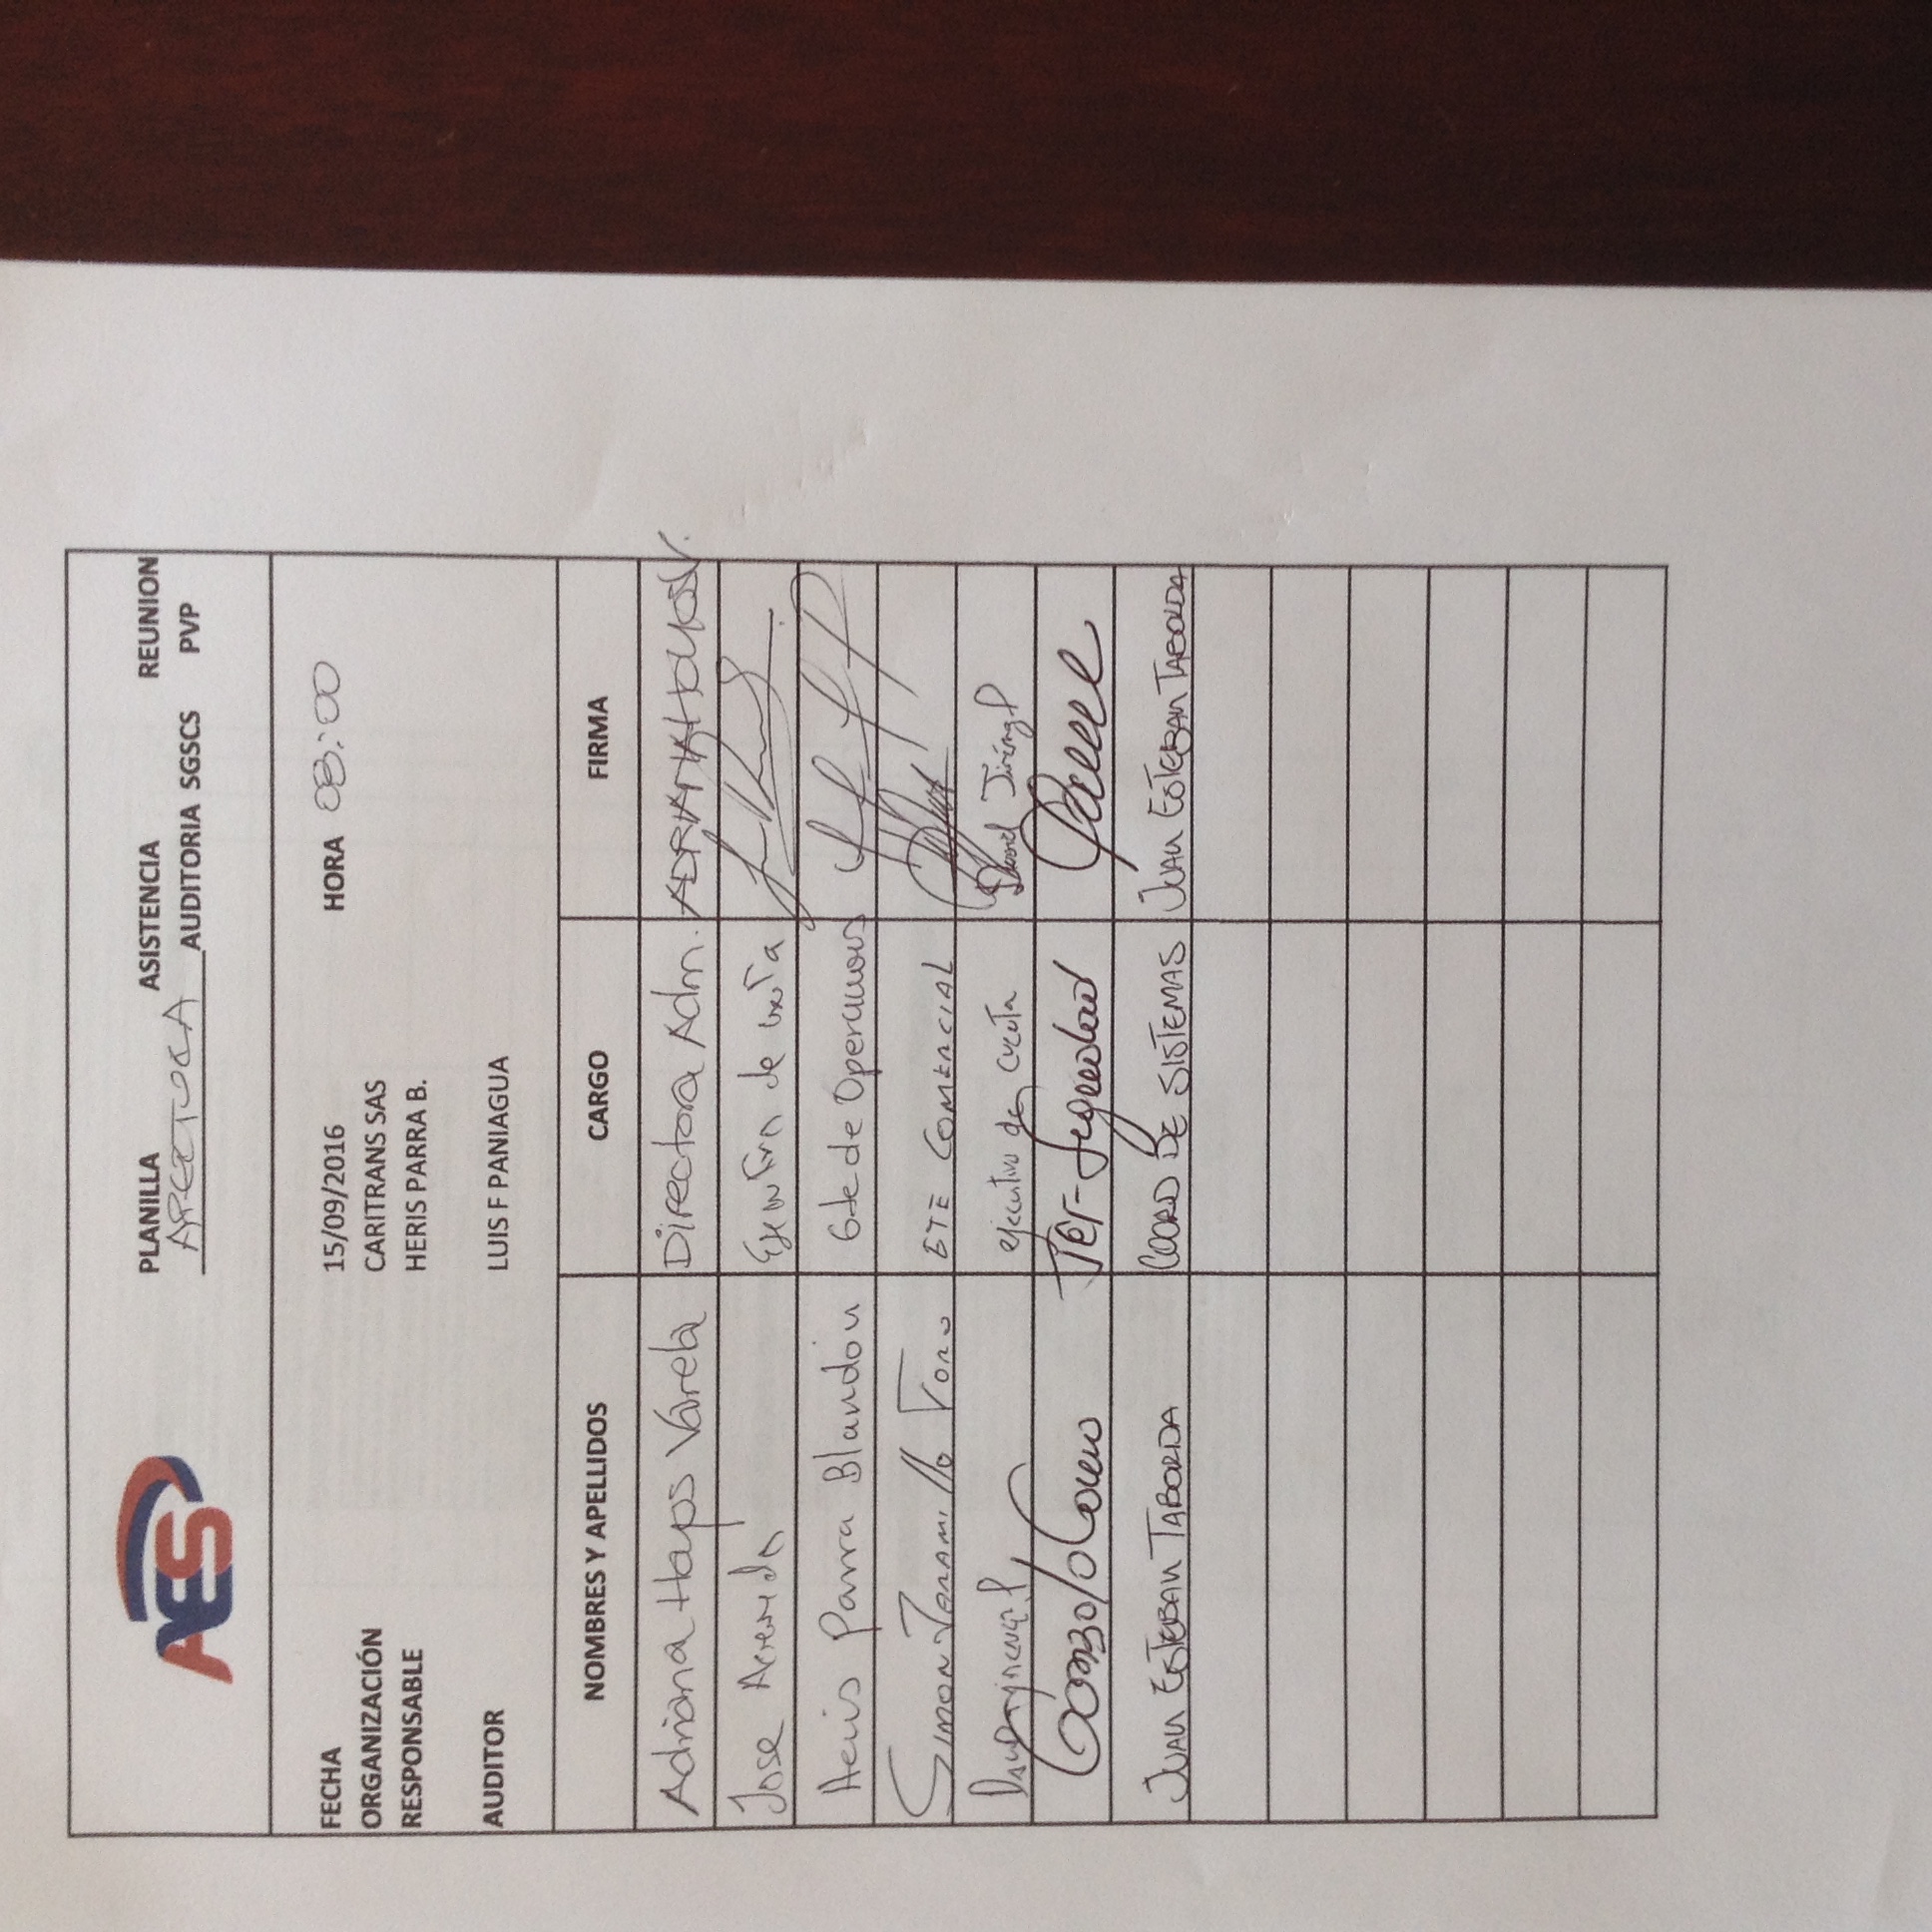 AES
PLANILLA ASISTENCIA REUNION
APERTURA AUDITORIA SGSCS PVP
FECHA 15/09/2016 HORA 08:00
ORGANIZACIÓN CARITRANS SAS
RESPONSABLE HERIS PARRA B.
AUDITOR LUIS F PANIAGUA
NOMBRES Y APELLIDOS CARGO FIRMA
Adriana Hoyos Varela Directora Adm. ADRIANA HOYOS V.
Jose Acevedo Ejecutivo de cuenta
Heris Parra Blandón Gte de Operaciones
SIMON JARAMILLO TORO GTE COMERCIAL
ejecutivo de cuenta David
Gonzalo Jef- Seguridad
JUAN ESTEBAN TABORDA COORD DE SISTEMAS JUAN ESTEBAN TABORDA